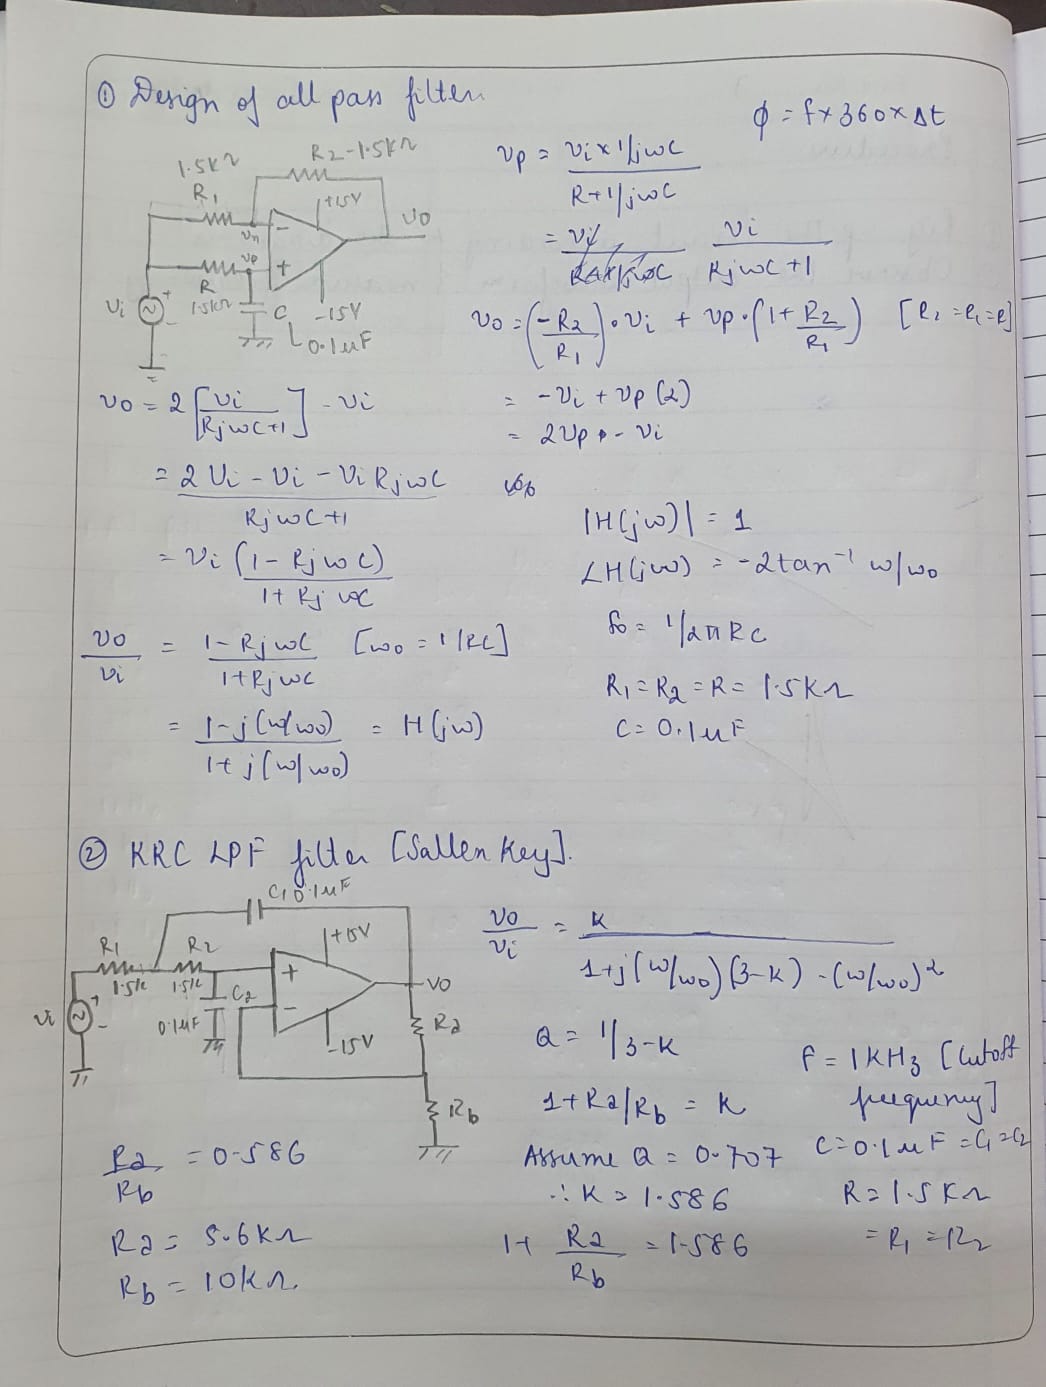 ① Design of all pass filter
ϕ = f × 360 × Δt
1.5KΩ
R1
R2-1.5KΩ
+15V
Vn
Vp
VO
R
1.5KΩ
Vi
+
-
C
-15V
0.1μF
Vp = Vi × 1/jωC
R+1/jωC
= Vi
Rjωc +1
VO = (-R2/R1) . Vi + Vp . (1 + R2/R1) [R2 = R1 = R]
= -Vi + Vp (2)
= 2Vp - Vi
VO = 2 [Vi / Rjωc+1] - Vi
= 2 Vi - Vi - Vi Rjωc
Rjωc+1
= Vi (1 - Rjωc)
1 + Rjωc
VO/Vi = 1 - Rjωc / 1+Rjωc [ω0 = 1/RC]
= 1-j(ω/ω0) / 1+j(ω/ω0) = H(jω)
|H(jω)| = 1
∠H(jω) = -2tan⁻¹ ω/ω0
f0 = 1/2πRC
R1 = R2 = R = 1.5KΩ
C = 0.1μF
② KRC LPF filter [Sallen Key].
C1 0.1μF
R1
R2
+15V
1.5k
1.5k
C2
0.1μF
Vi
+
-
-15V
VO
Ra
Rb
VO/Vi = K
1+j(ω/ω0)(3-K) - (ω/ω0)²
Q = 1/3-K
1+Ra/Rb = K
f = 1KHz [Cutoff
frequency]
Assume Q = 0.707
C = 0.1μF = C1 = C2
∴ K = 1.586
R = 1.5KΩ
= R1 = R2
1+ Ra/Rb = 1.586
Ra/Rb = 0.586
Ra = 5.6KΩ
Rb = 10KΩ.